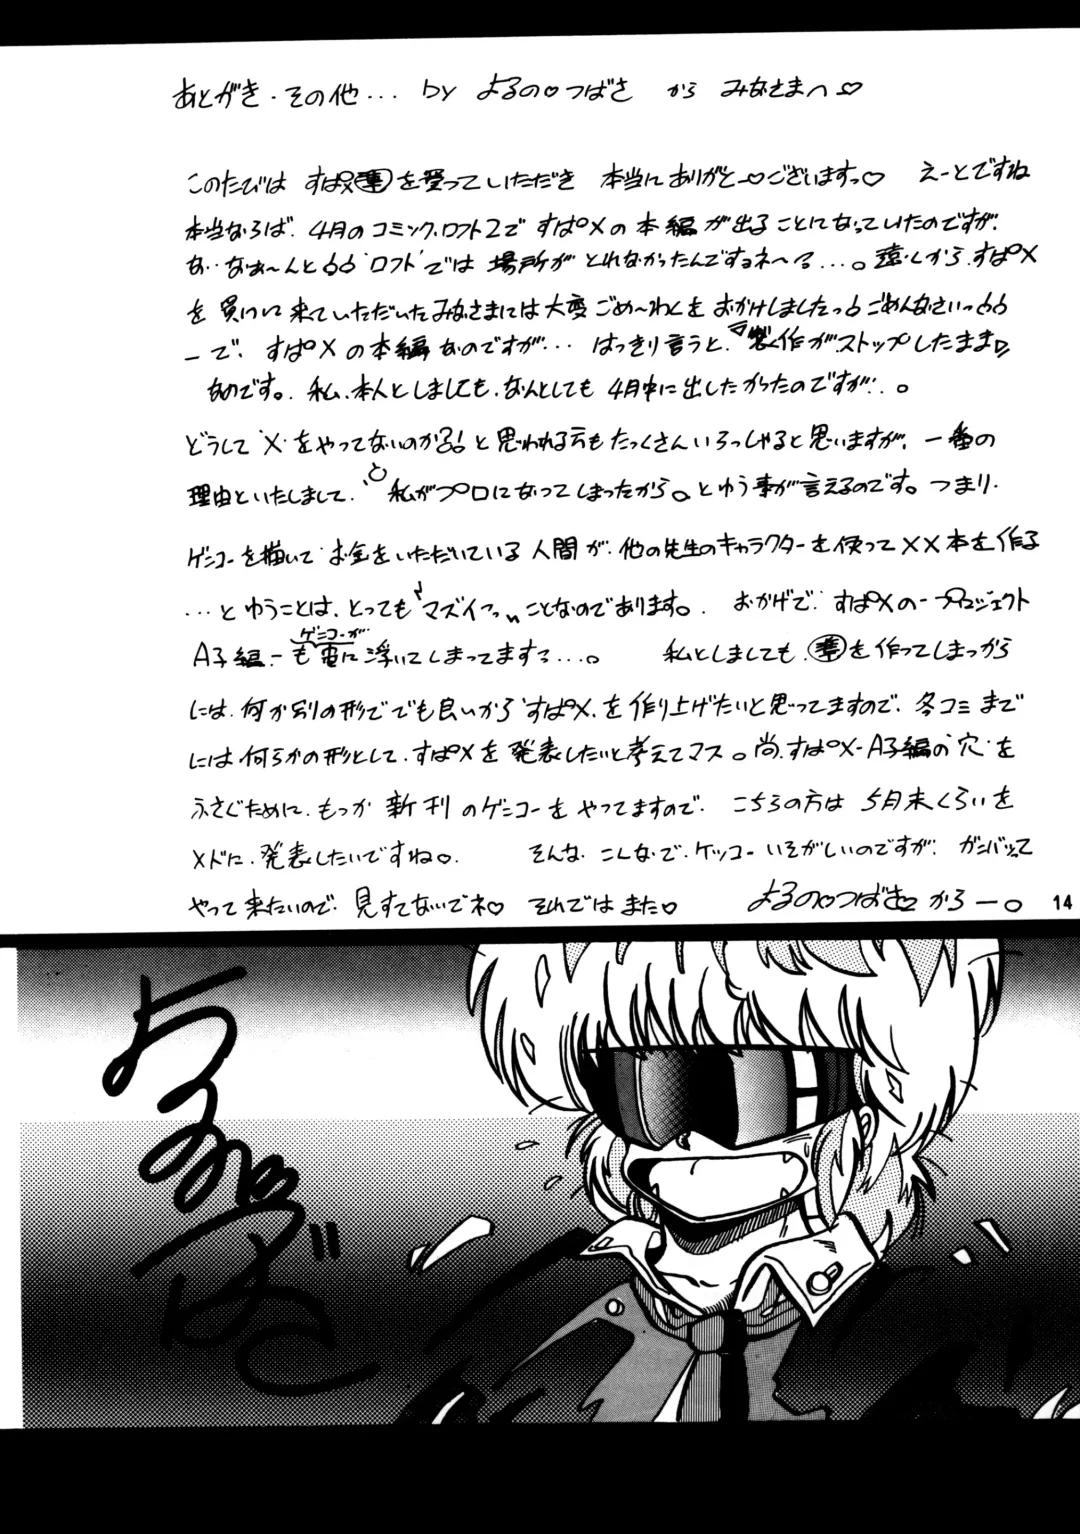 あとがき・その他... by よるの♡つばさ から みなさまへ♡
このたびは すぱX準を受っていただき 本当にありがと〜♡ございますっ♡ えーとですね
本当ならば、4月のコミックロフト2で すぱ°Xの本編が出ることになっていたのですが、
な、なぁ〜んと66 ロフトでは 場所が とれなかったんですョネ〜ろ...。遠くから、すぱ°X
を 買いに来ていただいたみなさまには大変ごめ〜わくを おかけしましたっ6 ごめんなさいっ66
ーで、すぱ°Xの本編なのですが... はっきり言うと、製作がストップしたまま
なのです。私、本人としましても、なんとしても 4月中に出したかったのですが..。
どうして"X"をやってないのか?! と思われる方もたっくさんいらっしゃると思いますが、一番の
理由といたしまして、"私がプロになってしまったから。とゆう事が言えるのです。つまり、
ゲンコーを描いて お金をいただいている人間が、他の先生のキャラクターを使って××本を作る
...とゆうことは、とっても マズイっ ことなのであります。おかげで、すぱ°Xの一プロジェクト
A子編一も ゲンコーが 宙に浮いてしまってますろ...。 私としましても、準を作ってしまっから
には、何か別の形ででも良いから すぱ°X、を作り上げたいと思ってますので、冬コミまで
には何らかの形として、すぱ°Xを発表したいと考えてマス。尚、すぱ°X-A子編の"穴"を
ふさぐために、もっか 新刊 のゲンコーを やってますので、こちらの方は 5月末くらいを
メドに、発表したいですね。 そんな、こんなで、ケッコー いそがしいのですが、ガンバッて
やって来たいので、見すてないでネ♡ それでは また♡ よるの♡つばさ から ー。
14
よるの
つばさ